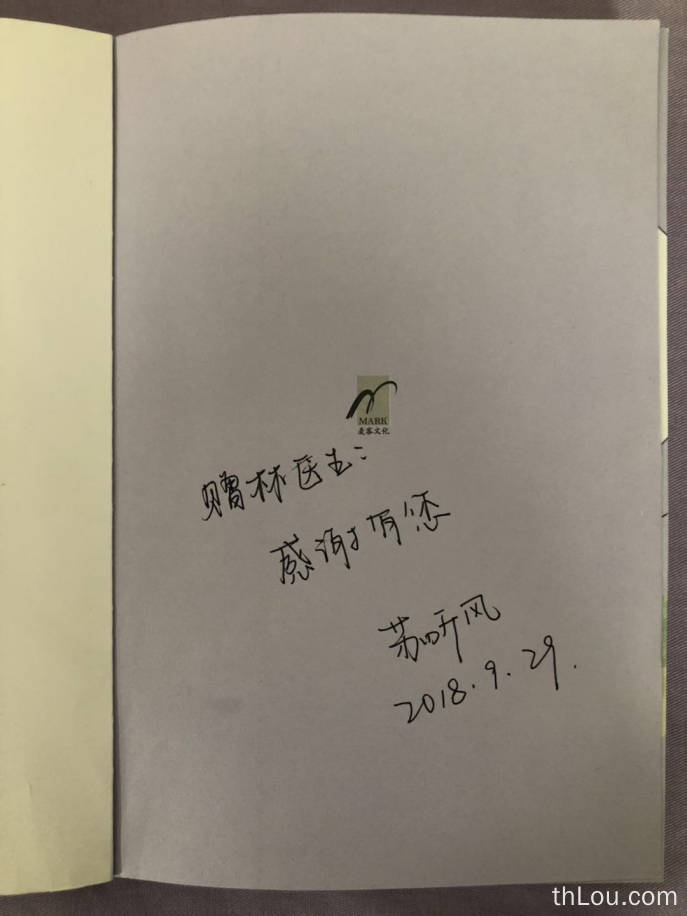 MARK
麦客文化
赠林医生：
感谢有您
苏听风
2018.9.29.
thLou.com